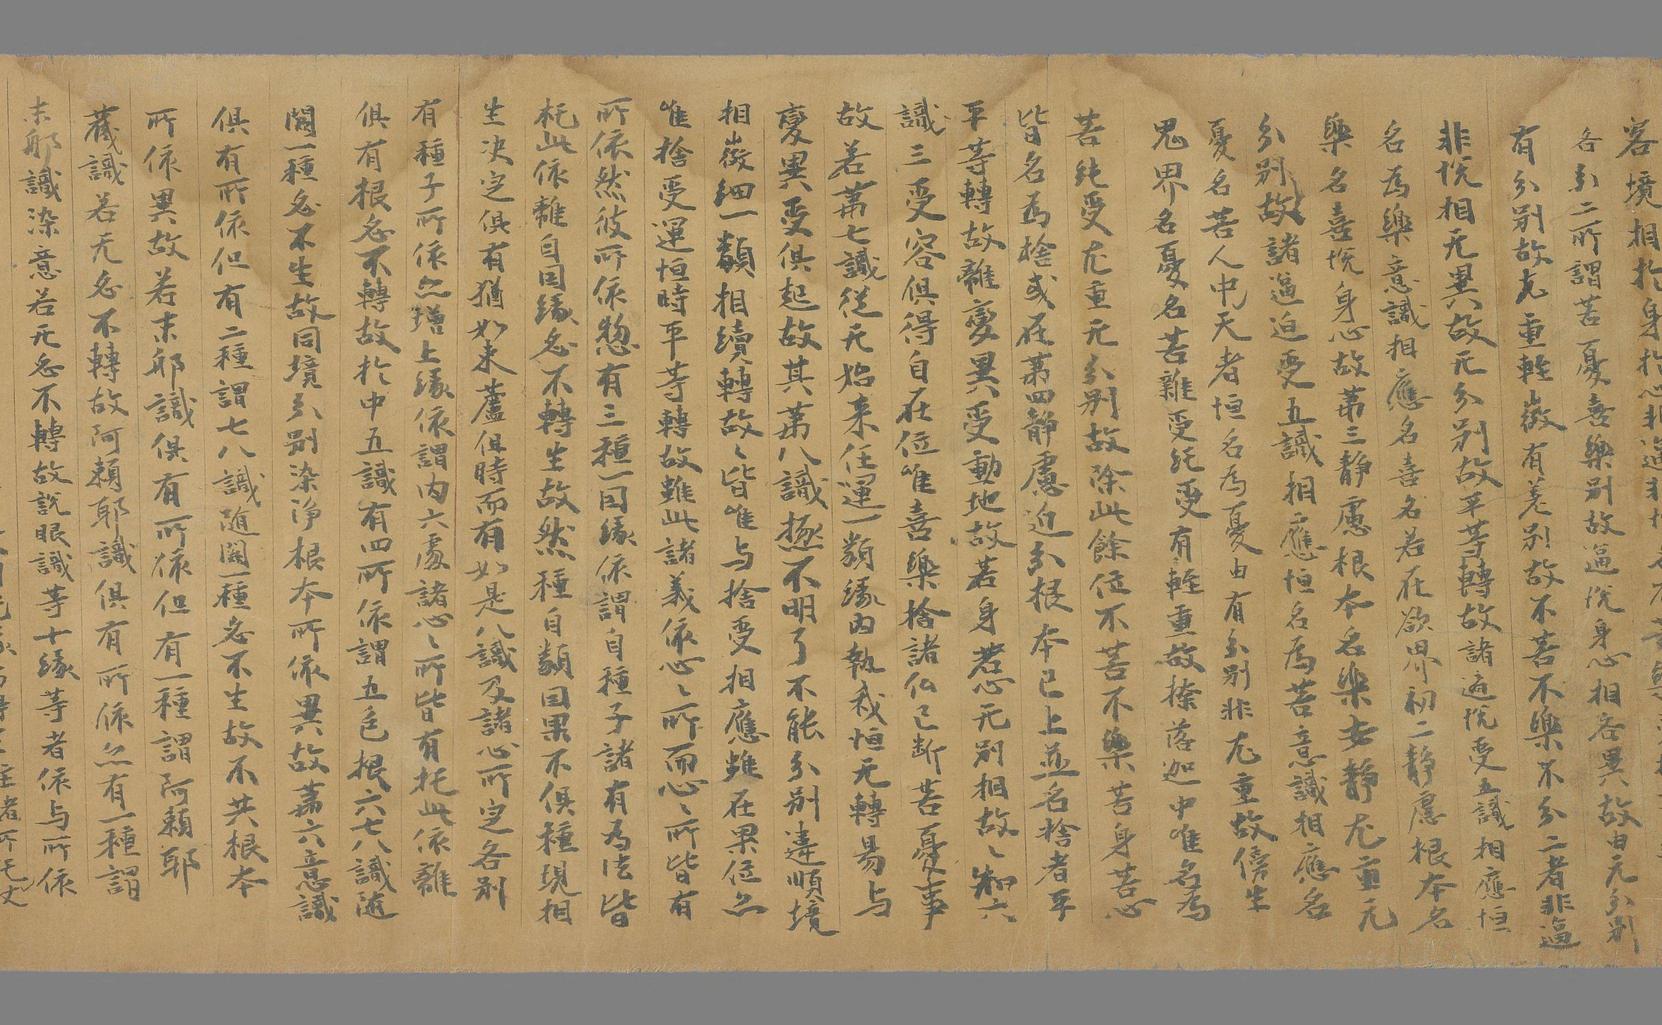 容境相於身於心非逼非悅名不苦樂受
各分二所謂苦憂喜樂別故逼悅身心相各異故由无分別
有分別故尤重輕微有差別故不苦不樂不分二者非逼
非悅相无異故无分別故平等轉故諸適悅受五識相應恒
名為樂意識相應名喜名若在欲界初二靜慮根本名
樂名喜悅身心故第三靜慮根本名樂安靜尤重无
分別故諸逼迫受五識相應恒名為苦意識相應名
憂名苦人中天者恒名為憂由有分別非尤重故傍生
鬼界名憂名苦雜受純受有輕重故捺落迦中唯名為
苦純受尤重无分別故除此餘位不苦不樂苦身若心
皆名為捨或在第四靜慮近分根本已上並名捨者平
平等轉故離變異受動地故若身若心无別相故〻知六
識三受容俱得自在位唯喜樂捨諸仏已斷苦憂事
故若第七識從无始來任運一類緣內執我恒无轉易与
變異受俱起故其第八識極不明了不能分別違順境
相微細一類相續轉故〻皆唯与捨受相應雖在果位亦
唯捨受運恒時平等轉故雖此諸義依心〻所而心〻所皆有
所依然彼所依惣有三種一因緣依謂自種子諸有為法皆
托此依離自因緣必不轉生故然種自類因果不俱種現相
生決定俱有猶如束蘆俱時而有如是八識及諸心所定各別
有種子所依二增上緣依謂內六處諸心〻所皆有托此依離
俱有根必不轉故於中五識有四所依謂五色根六七八識隨
闕一種必不生故同境分別染淨根本所依異故第六意識
俱有所依但有二種謂七八識隨闕一種必不生故不共根本
所依異故若末耶識俱有所依但有一種謂阿賴耶
藏識若无必不轉故阿賴耶識俱有所依亦有一種謂
末耶識染意若无必不轉故說眼識等十緣等者依与所依